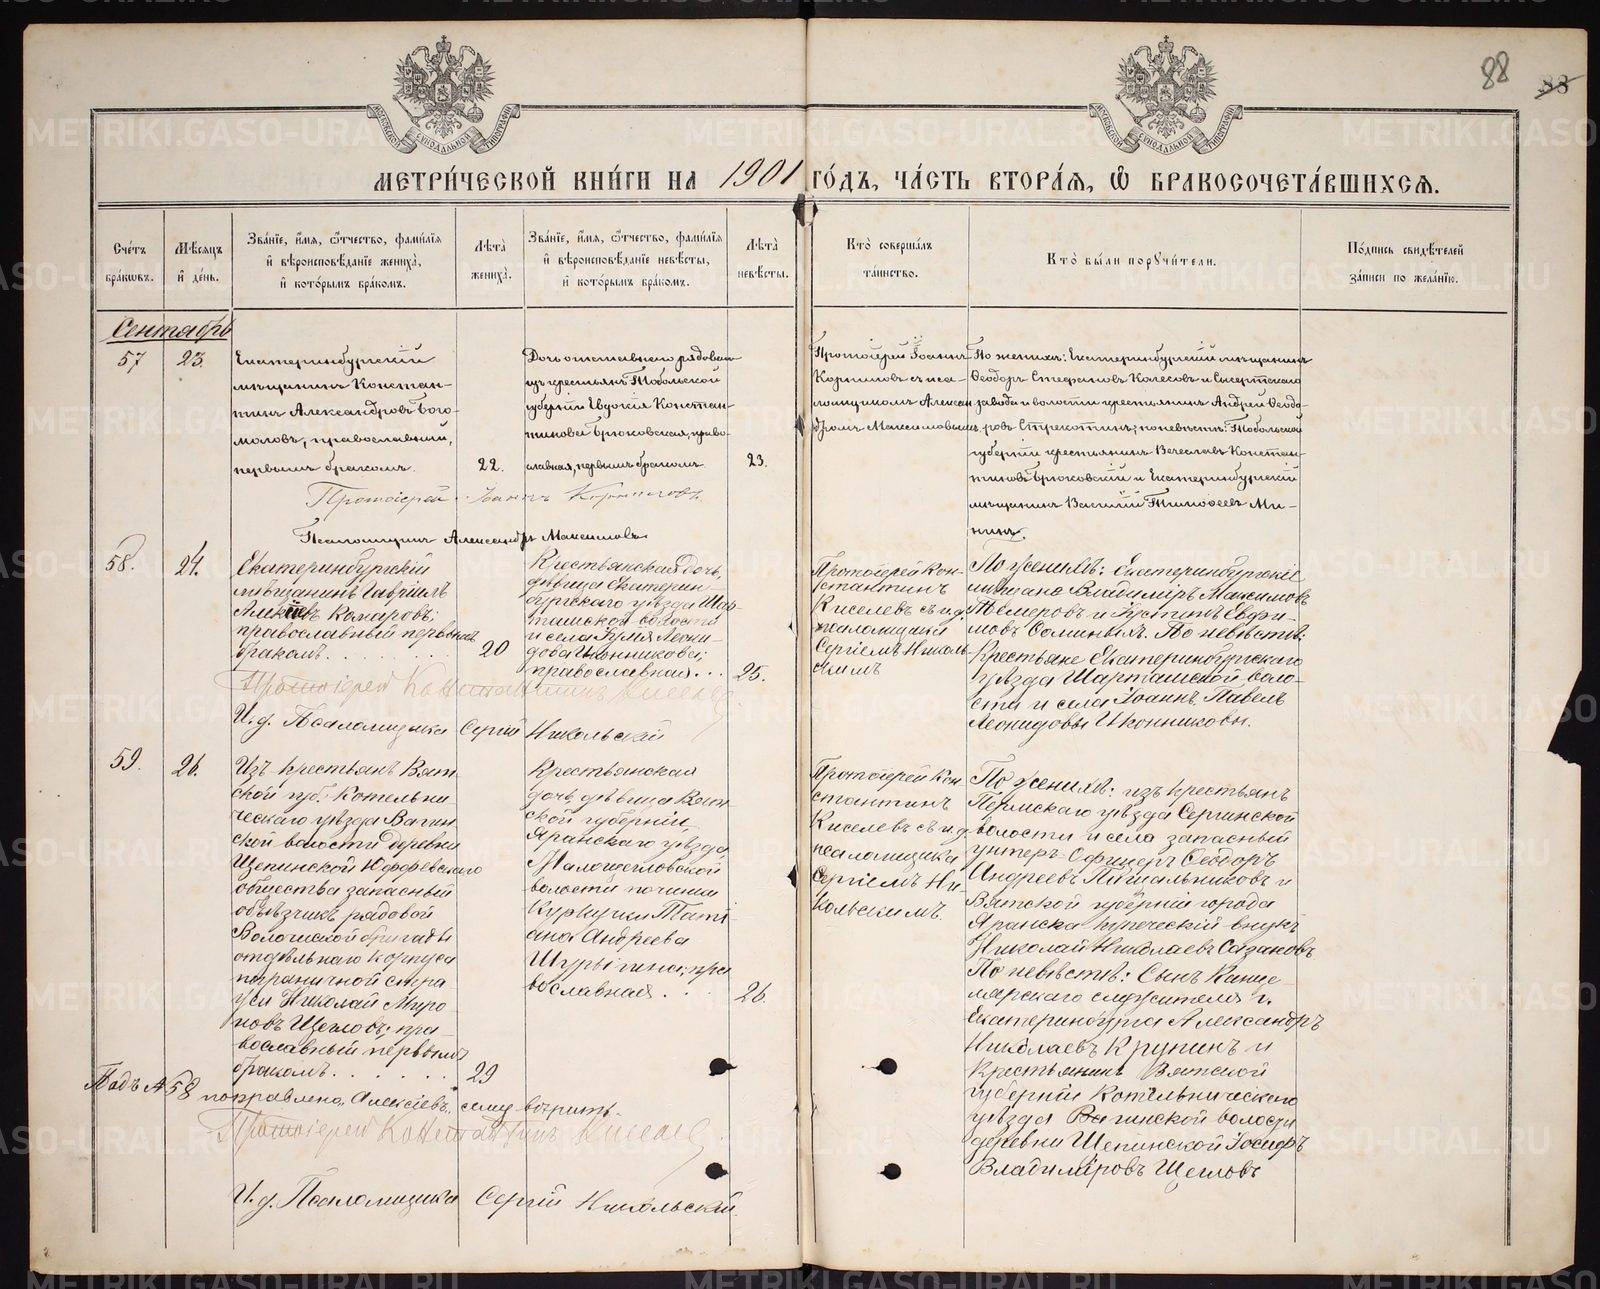 88
88
МЕТРИ́ЧЕСКОЙ КНИ́ГИ НА 1901 ГО́ДЪ, ЧА́СТЬ ВТОРА́Я, Ѡ БРАКОСОЧЕТА́ВШИХСЯ.
Сче́тъ бра́кωвъ.
Мѣ́сяцъ и де́нь.
Зва́нїе, и́мя, ѻ́тчество, фами́лїя и вѣроисповѣ́данїе жениха̀, и кото́рымъ бра́комъ.
Лѣта̀ жениха̀.
Зва́нїе, и́мя, ѻ́тчество, фами́лїя и вѣроисповѣ́данїе невѣ́сты, и кото́рымъ бра́комъ.
Лѣта̀ невѣ́сты.
Кто̀ соверша́лъ та́инство.
Кто̀ бы́ли поручи́тели.
По́дпись свидѣ́телей за́писи по жела́нїю.
Сентябрь
57
23.
Екатеринбургскій
мѣщанинъ Констан-
тинъ Александровъ Бого-
моловъ, православный,
первымъ бракомъ.
22.
Дочь отставнаго рядоваго
изъ крестьянъ Тобольской
губерніи Евдокія Констан-
тинова Брюховская, право-
славная, первымъ бракомъ
23.
Протоіерей Іоаннъ
Корниловъ съ пса-
ломщикомъ Алексан-
дромъ Максимовымъ
По женихѣ: Екатеринбургскій мѣщанинъ
Ѳеодоръ Стефановъ Колесовъ и Сысертскаго
завода и волости крестьянинъ Андрей Ѳеодо-
ровъ Стрекотинъ; по невѣстѣ: Тобольской
губерніи крестьянинъ Вячеславъ Констан-
тиновъ Брюховскій и Екатеринбургскій
мѣщанинъ Василій Тимоѳеевъ Ми-
нинъ.
Протоіерей Іоаннъ Корниловъ.
Псаломщикъ Александръ Максимовъ
58.
24.
Екатеринбургскій
мѣщанинъ Гавріилъ
Алексіевъ Комаровъ,
православный первымъ
бракомъ.
20
Крестьянская дочь,
дѣвица Екатерин-
бургскаго уѣзда Шар-
ташской волости
и села Леони-
дова Иконникова;
православная...
25.
Протоіерей Кон-
стантинъ
Киселевъ съ и.д.
псаломщика
Сергіемъ Николь-
скимъ
По женихѣ: Екатеринбургскіе
мѣщане Владиміръ Максимовъ
Темеровъ и Іустинъ Евфи-
мовъ Ѳоминыхъ. По невѣстѣ:
Крестьяне Екатеринбургскаго
уѣзда Шарташской воло-
сти и села Іоаннъ, Павелъ
Леонидовы Иконниковы.
Протоіерей Константинъ Киселевъ
И.д. Псаломщика Сергій Никольскій
59.
26.
Изъ крестьянъ Вят-
ской губ. Котельни-
ческаго уѣзда Вагин-
ской волости деревни
Щепинской
общества запасный
объѣзчикъ рядовой
Волочиской бригады
отдѣльнаго корпуса
пограничной стра-
жи Николай Миро-
новъ Щегловъ; пра-
вославный первымъ
бракомъ.
29
Крестьянская
дочь, дѣвица Вят-
ской губерніи,
Яранскаго уѣзда
Малощегловской
волости починка
Татi-
ана Андреева
Шурыгина; пра-
вославная.
26.
Протоіерей Кон-
стантинъ
Киселевъ съ и.д.
псаломщика
Сергіемъ Ни-
кольскимъ.
По женихѣ: изъ крестьянъ
Пермскаго уѣзда Сергинской
волости и села запасный
унтеръ-офицеръ Ѳеодоръ
Андреевъ Пищальниковъ и
Вятской губерніи города
Яранска купеческій внукъ
Николай Николаевъ Сазановъ
По невѣстѣ: Сынъ Канце-
лярскаго служителя г.
Екатеринбурга Александръ
Николаевъ Крупинъ и
Крестьянинъ Вятской
губерніи Котельническаго
уѣзда Вагинской волости
деревни Щепинской Іосифъ
Владиміровъ Щегловъ
Подъ № 58 поправлено „Алексіевъ“, сему вѣрить.
Протоіерей Константинъ Киселевъ.
И.д. Псаломщика Сергій Никольскій.
METRIKI.GASO-URAL.RU